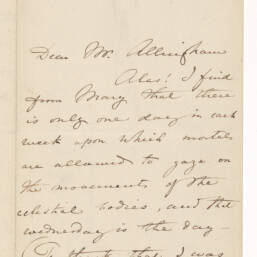 Dear Mr. Allingham
Alas! I find
from Mary that there
is only one day in each
week upon which mortals
are allowed to gaze on
the movements of the
celestial bodies, and that
Wednesday is the day—
To think that I was